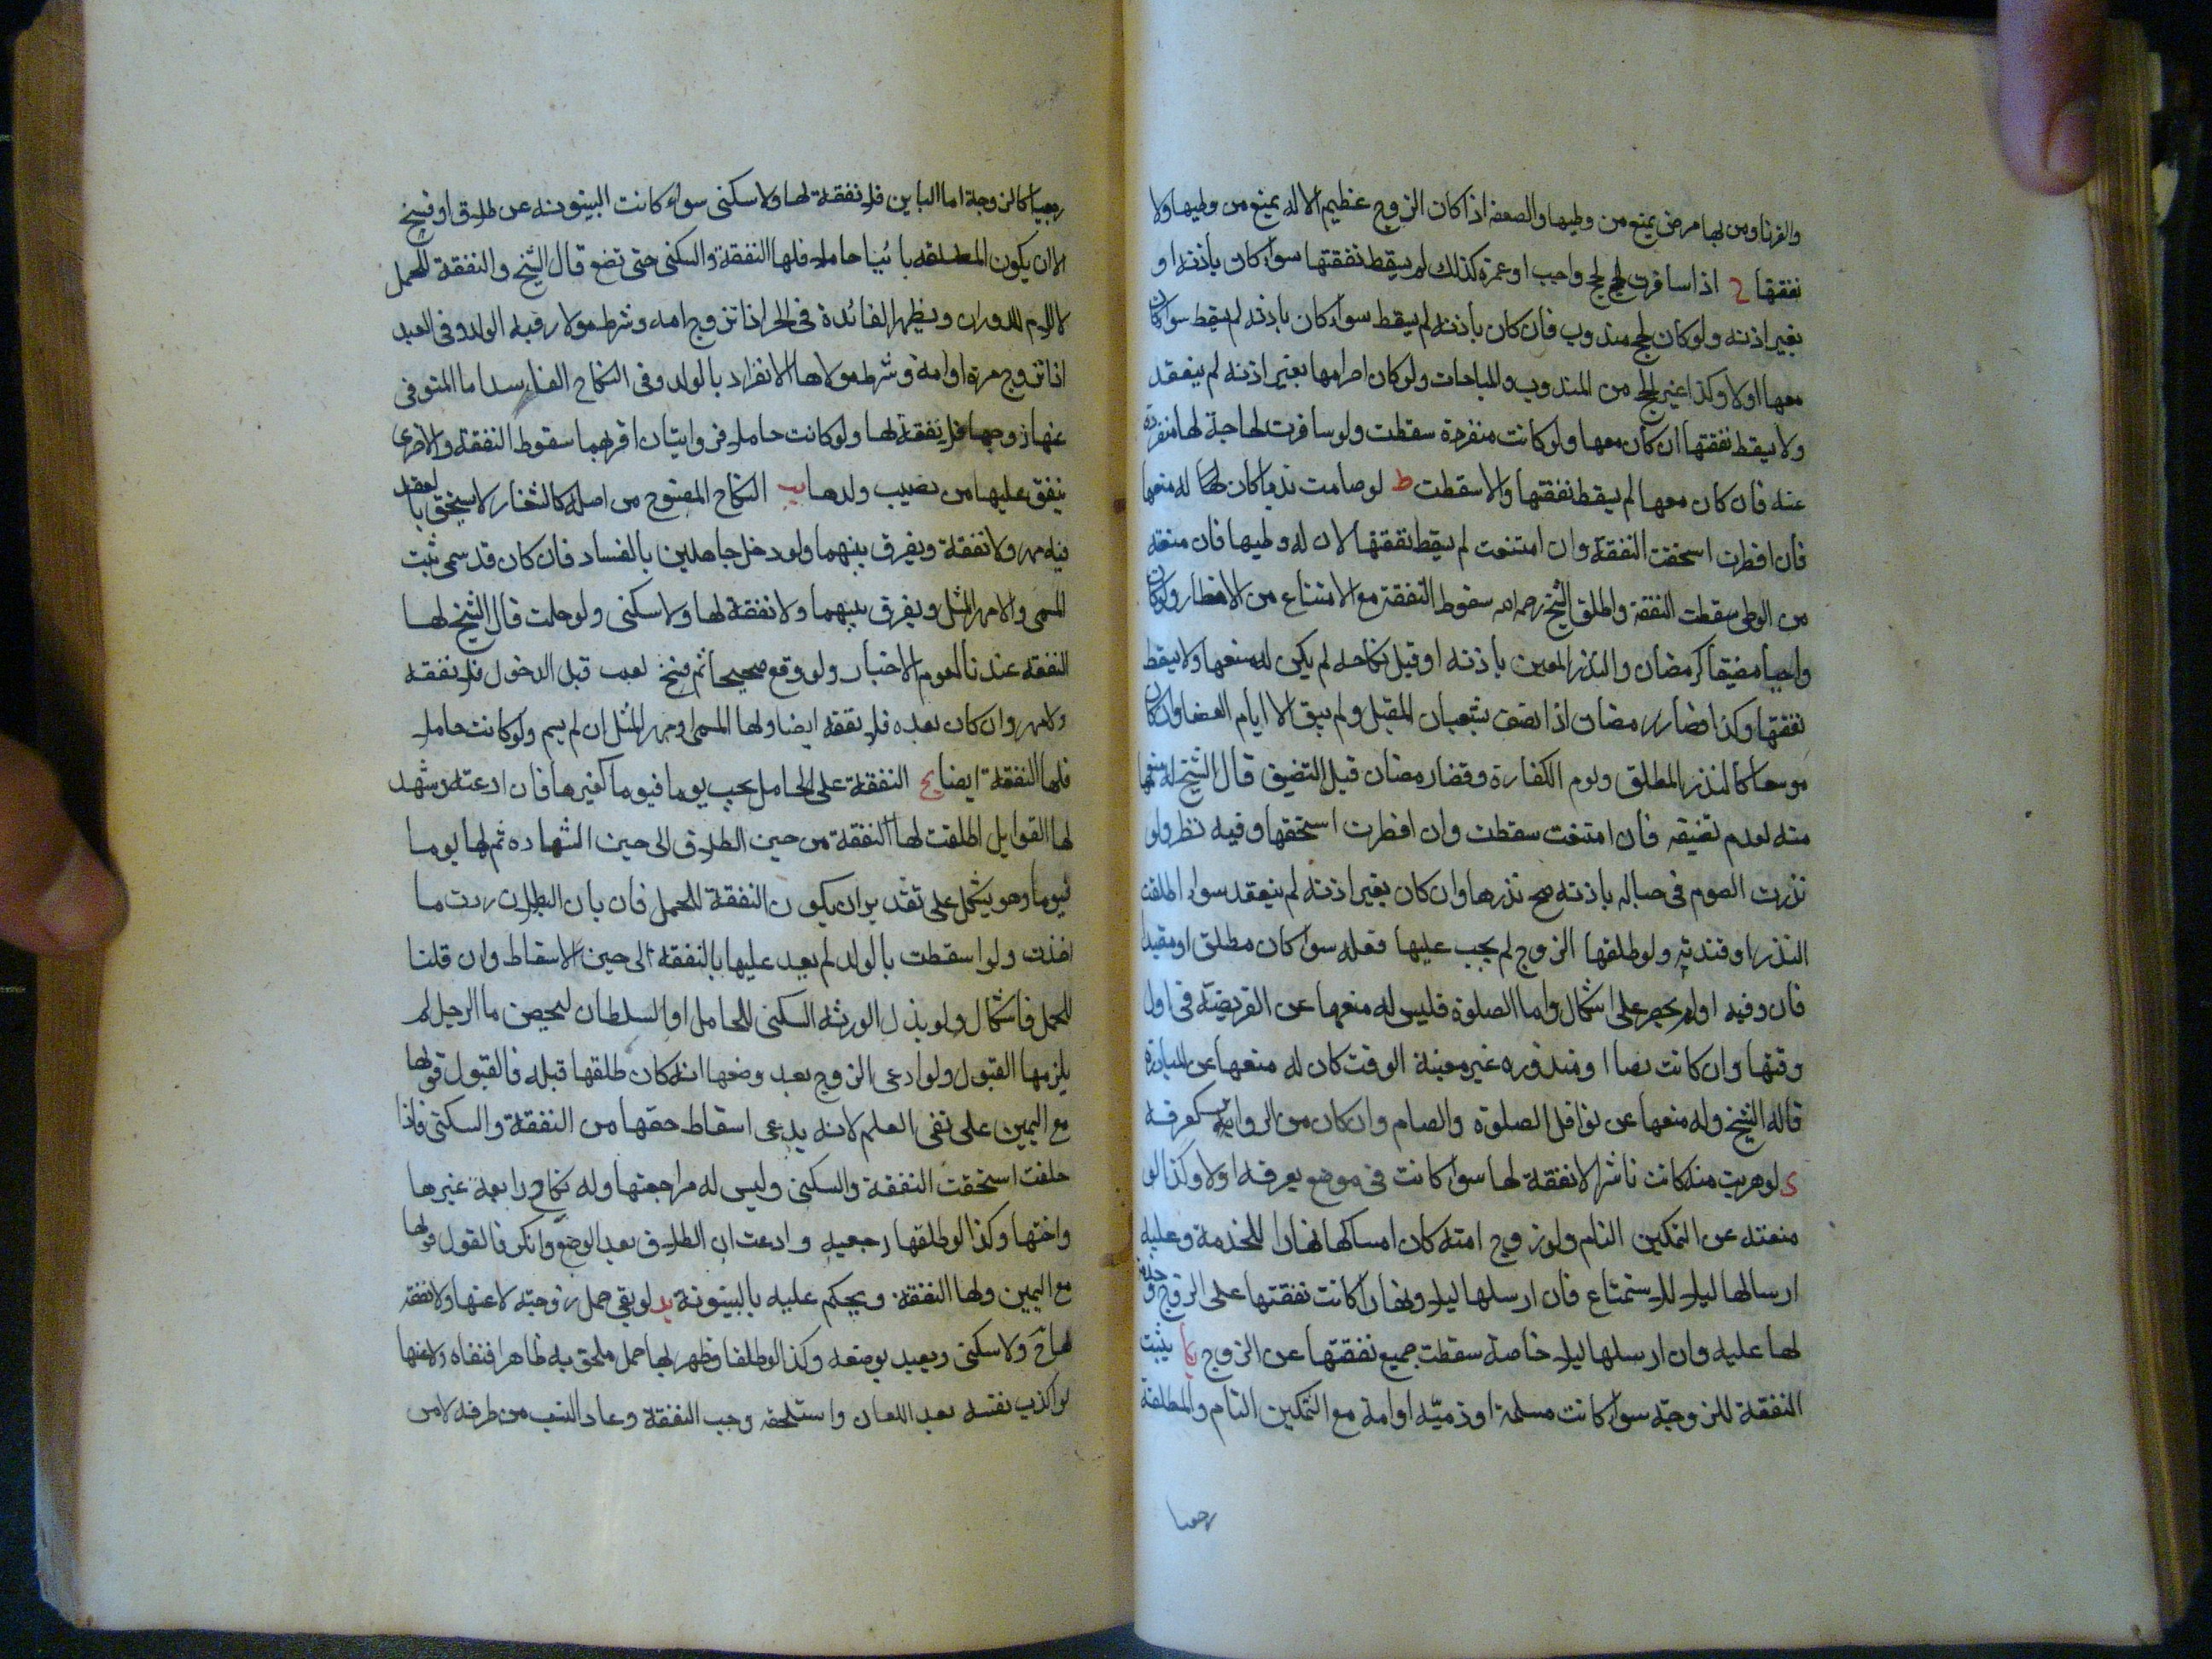 والقرنا ومن بها مرض يمنع من وطيها والصعصه اذا كان الزوج عظيم الاله يمنع من وطيها ولا
نفقتها ح اذا سافرت لحج واجب او عمرة كذلك لم يسقط نفقتها سواء كان باذنه او
بغير اذنه ولو كان الحج مندوب فان كان باذنه لم يسقط سواء كان باذنه لم يسقط سواء كان
معها اولا وكذا غير الحج من المندوب والمباحات ولو كان احرامها بغير اذنه لم ينعقد
ولا يسقط نفقتها ان كان معها ولو كانت منفردة سقطت ولو سافرت لحاجة لها منفردة
عنه فان كان معها لم يسقط نفقتها والا سقطت ط لو صامت ندبا كان له منعها
فان افطرت استحقت النفقة وان امتنعت لم يسقط نفقتها لان له وطيها فان منعته
من الوطى سقطت النفقة واطلق الشيخ رحمه الله سقوط النفقة مع الامتناع من الافطار ولو كان
واجبا مضيقا كرمضان والنذر المعين باذنه او قبل نكاحه لم يكن له منعها ولا يسقط
نفقتها وكذا قضاء رمضان اذا تضيق بشعبان المقبل ولم يبق الا ايام القضا وان كان
موسعا كالنذر المطلق وصوم الكفارة وقضاء رمضان قبل التضيق قال الشيخ له منعها
منه لعدم تضيقه فان امتنعت سقطت وان افطرت استحقها وفيه نظر ولو
نذرت الصوم فى حباله باذنه صح نذرها وان كان بغير اذنه لم ينعقد سواء اطلقت
النذر او قيدته ولو طلقها الزوج لم يجب عليها فعله سواء كان مطلق او مقيدا
فان وفيه اولم يحصر على اشكال واما الصلوة فليس له منعها عن الفريضة فى اول
وقتها وان كانت قضاا او منذوره غير معينة الوقت كان له منعها عن المبادرة
قاله الشيخ وله منعها عن نوافل الصلوة والصيام وان كان من الرواتب كعرفه
ى لو هربت منه كانت ناشزا لا نفقة لها سواء كانت فى موضع يعرفه اولا وكذا لو
منعته عن التمكين التام ولو زوج امته كان امساكها نهارا للخدمة وعليه
ارسالها ليلا للاستمتاع فان ارسلها ليلا ونهارا كانت نفقتها على الزوج ولا خدمة
لها عليه وان ارسلها ليلا خاصة سقطت جميع نفقتها عن الزوج يا يثبت
النفقة للزوجه سواء كانت مسلمة او ذميه او امة مع التمكين التام والمطلقة
رجعيا
رجعيا كالزوجة اما الباين فلا نفقة لها ولا سكنى سواء كانت البينونه عن طلاق او فسخ
الا ان يكون المطلقه بائنا حاملا فلها النفقة والسكنى حتى تضع قال الشيخ والنفقة للحمل
لا للام للدوران ويظهر الفائدة فى الحر اذا تزوج امه وشرط مولا رقبه الولد وفى العبد
اذا تزوج حرة او امة وشرط مولاها الانفراد بالولد وفى النكاح الفاسد اما المتوفى
عنها زوجها فلا نفقة لها ولو كانت حاملا فروايتان اقربهما سقوط النفقة والاخرى
ينفق عليها من نصيب ولدها يب النكاح المفسوخ من اصله كالشغار لا يستحق بالعقد
فيه مهر ولا نفقة ويفرق بينهما ولو دخل جاهلين بالفساد فان كان قد سمى ثبت
المسمى والا مهر المثل ويفرق بينهما ولا نفقة لها ولا سكنى ولو حملت قال الشيخ لها
النفقه عندنا لعموم الاخبار ولو وقع صحيحا ثم فسخ لعيب قبل الدخول فلا نفقه
ولا مهر وان كان بعده فلا نفقه ايضا ولها المسمى او مهر المثل ان لم يسم ولو كانت حاملا
فلها النفقة ايضا يج النفقة على الحامل يجب يوما فيوما كغيرها فان ادعته وشهد
لها القوابل اطلقت لها النفقة من حين الطلاق الى حين الشهاده ثم لها يوما
فيوما وهو يشكل على تقدير ان يكون النفقة للحمل فان بان البطلان ردت ما
اخذت ولو اسقطت بالولد لم يعد عليها بالنفقه الى حين الاسقاط وان قلنا
للحمل فاشكال ولو بذل الورثه السكنى للحامل او السلطان لتحصن ما الرجل لم
يلزمها القبول ولو ادعى الزوج بعد وضعها انه كان طلقها قبله فالقبول قولها
مع اليمين على نفى العلم لانه يدعى اسقاط حقها من النفقة والسكنى فاذا
حلفت استحقت النفقة والسكنى وليس له مراجعتها وله نكاح رابعة غيرها
واختها وكذا لو طلقها رجعيه وادعت ان الطلاق بعد الوضع وانكر فالقول قولها
مع اليمين ولها النفقة ويحكم عليه بالبينونة يد لو نفى حمل زوجته لاعنها ولا نفقه
لها ح ولا سكنى ويعيد بوضعه وكذا لو طلقا وظهر بها حمل ملحق به ظاهرا فنفاه ولاعنها
لو اكذب نفسه بعد اللعان واستلحقه وجب النفقة وعاد النسب من طرفه لا من